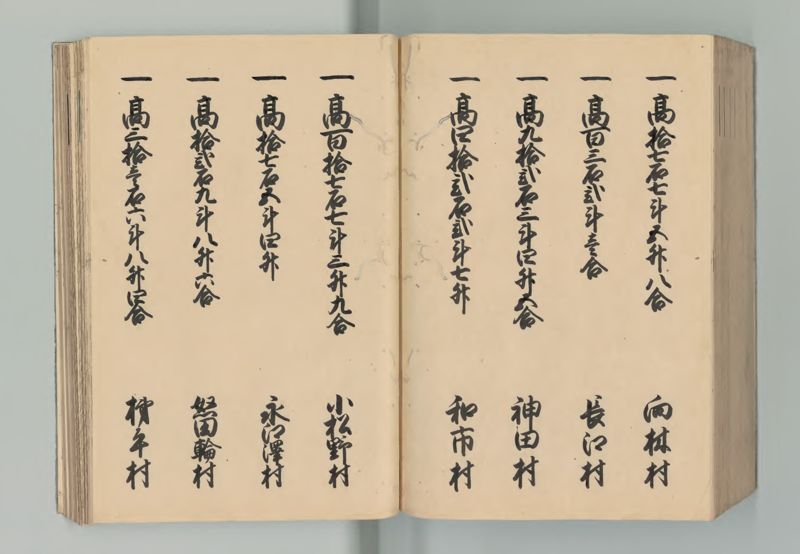 一 高拾七石七斗五升八合 向林村
一 高百三石弐斗壱合 長江村
一 高九拾弐石三斗四升五合 神田村
一 高四拾弐石弐斗七升 和市村
一 高百拾七石七斗三升九合 小松野村
一 高拾七石五斗四升 永江澤村
一 高拾弐石九斗八升六合 田輪村
一 高三拾壱石六斗八升四合 平村